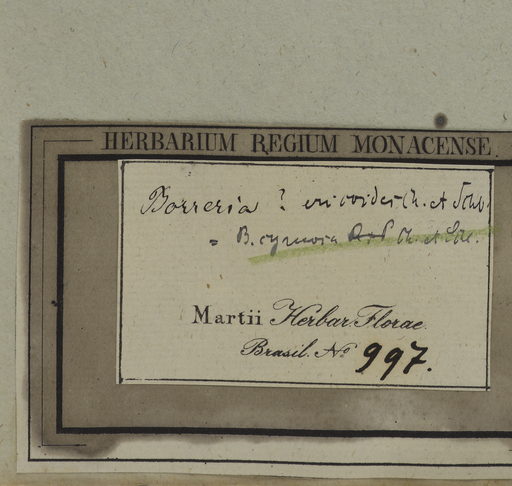 HERBARIUM REGIUM MONACENSE
Borreria ? ericoides Ch. et Schl.
= B. cymosa Ch. et Schl.
Martii Herbar. Florae
Brasil. No 997.